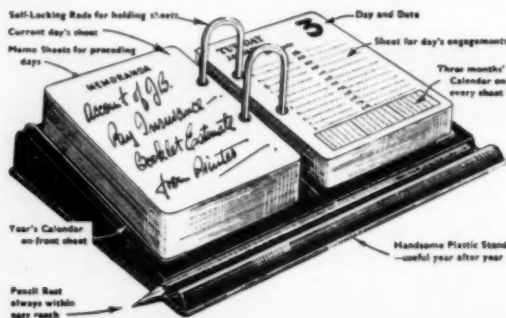 Self-Locking Rods for holding sheets
Current day's sheet
Memo Sheets for preceding
days
Day and Date
Sheet for day's engagements
Three months'
Calendar on
every sheet
MEMORANDA
Account of J.B.
Pay Insurance —
Booklet Estimate
from Printer
TUESDAY
3
Year's Calendar
on front sheet
Handsome Plastic Stand
—useful year after year
Pencil Rest
always within
easy reach